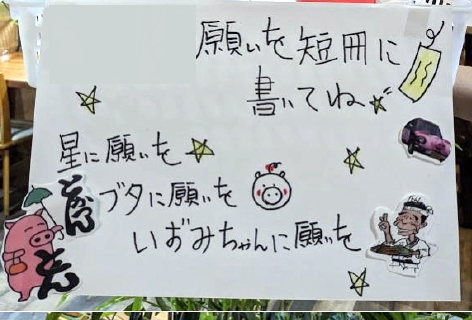 願いを短冊に
書いてね
星に願いを
ブタに願いを
いずみちゃんに願いを